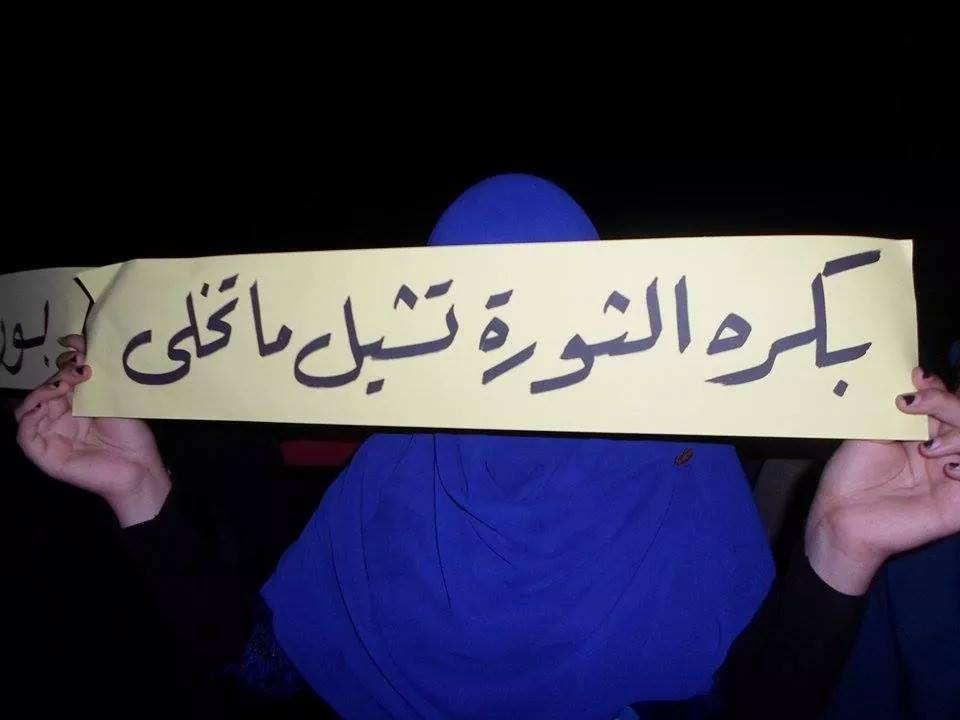 بكره الثورة تشيل ماتخلى